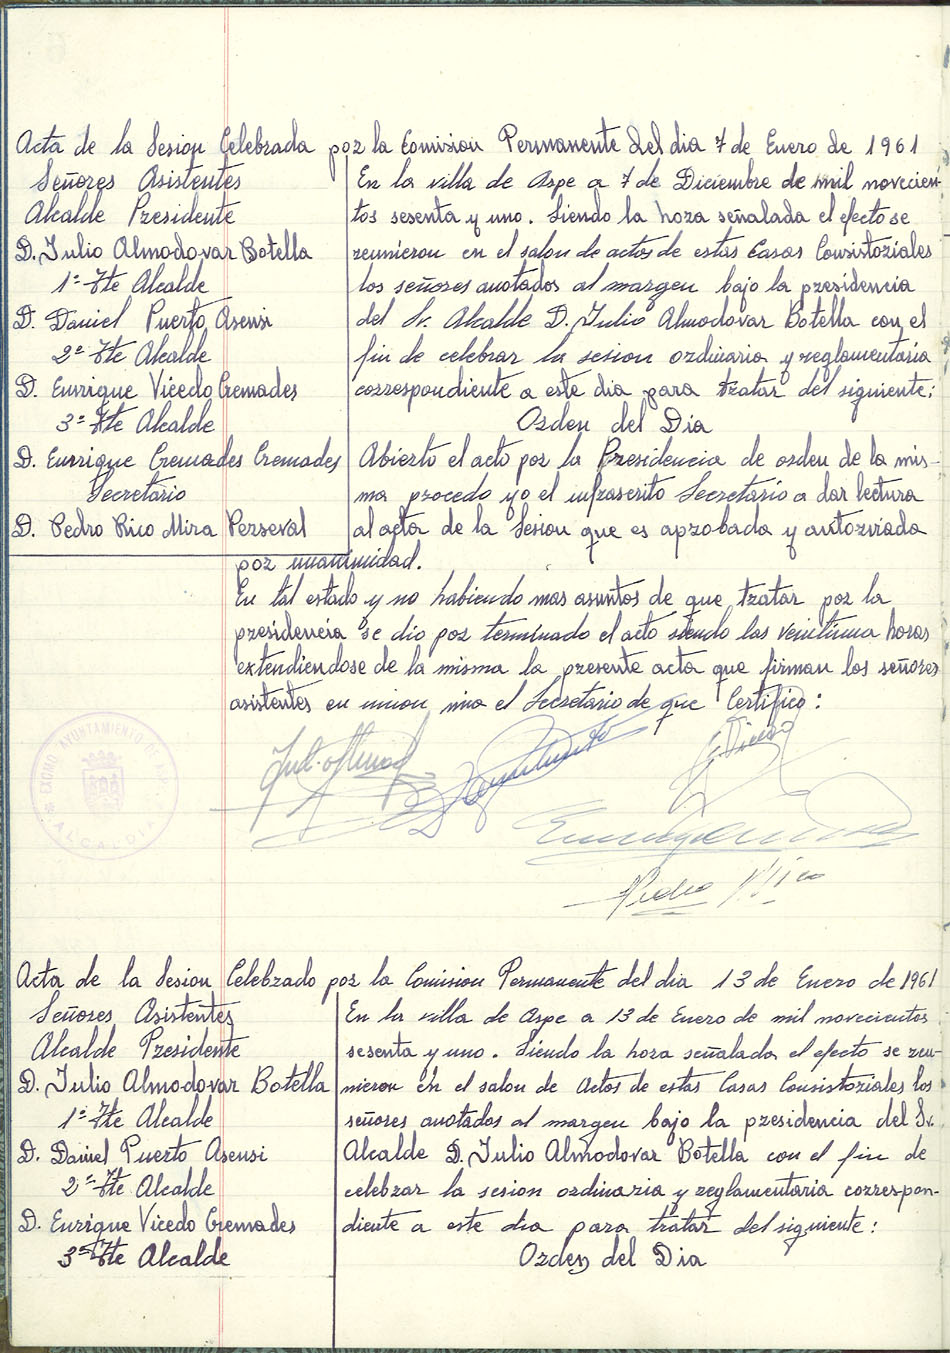 Acta de la Sesion Celebrada por la Comision Permanente del dia 7 de Enero de 1961
Señores Asistentes
Alcalde Presidente
D. Julio Almodovar Botella
1º Tte Alcalde
D. Daniel Puerto Asensi
2º Tte Alcalde
D. Enrique Vicedo Cremades
3º Tte Alcalde
D. Enrrique Cremades Cremades
Secretario
D. Pedro Rico Mira Perseval
En la villa de Aspe a 7 de Diciembre de mil novecien-
tos sesenta y uno. Siendo la hora señalada el efecto se
reunieron en el salon de actos de estas Casas Consistoriales
los señores anotados al margen bajo la presidencia
del Sr. Alcalde D. Julio Almodovar Botella con el
fin de celebrar la sesion ordinaria y reglamentaria
correspondiente a este dia para tratar del siguiente:
Orden del Dia
Abierto el acto por la Presidencia de orden de la mis-
ma procedo yo el infrascrito Secretario a dar lectura
al acta de la Sesion que es aprobada y autoriada
por unanimidad.
En tal estado y no habiendo mas asuntos de que tratar por la
presidencia se dio por terminado el acto siendo las veintiuna horas
extendiendose de la misma la presente acta que firman los señores
asistentes en union mia el Secretario de que Certifico:
EXCMO AYUNTAMIENTO DE
ALCALDIA
Pedro Rico
Acta de la Sesion Celebrado por la Comision Permanente del dia 13 de Enero de 1961
Señores Asistentes
Alcalde Presidente
D. Julio Almodovar Botella
1º Tte Alcalde
D. Daniel Puerto Asensi
2º Tte Alcalde
D. Enrique Vicedo Cremades
3º Tte Alcalde
En la villa de Aspe a 13 de Enero de mil novecientos
sesenta y uno. Siendo la hora señalada el efecto se reu-
nieron en el salon de Actos de estas Casas Consistoriales los
señores anotados al margen bajo la presidencia del Sr.
Alcalde D. Julio Almodovar Botella con el fin de
celebrar la sesion ordinaria y reglamentaria correspon-
diente a este dia para tratar del siguiente:
Orden del Dia